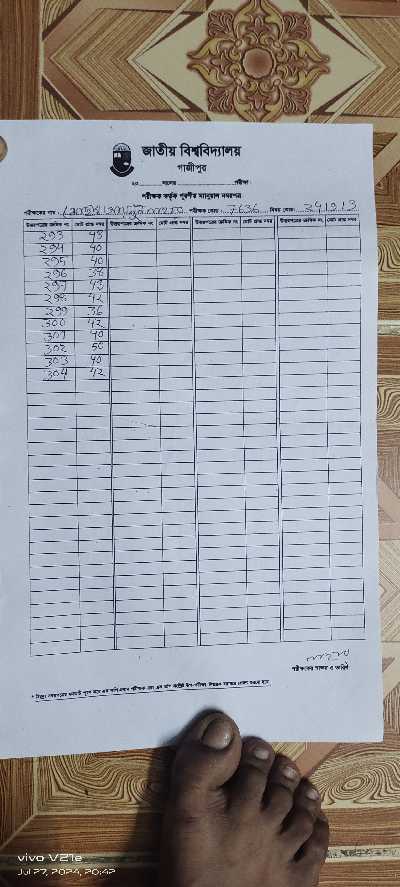 জাতীয় বিশ্ববিদ্যালয়
গাজীপুর
২০ সালের পরীক্ষা
পরীক্ষক কর্তৃক পূরণীয় ম্যানুয়াল নম্বরপত্র
পরীক্ষকের নাম : পরীক্ষক কোড : 7636 বিষয় কোড : 241913
উত্তরপত্রের ক্রমিক নং মোট প্রাপ্ত নম্বর উত্তরপত্রের ক্রমিক নং মোট প্রাপ্ত নম্বর উত্তরপত্রের ক্রমিক নং মোট প্রাপ্ত নম্বর উত্তরপত্রের ক্রমিক নং মোট প্রাপ্ত নম্বর
293 48
294 40
295 40
296 38
297 42
298 42
299 36
300 42
301 40
302 50
303 40
304 42
পরীক্ষকের স্বাক্ষর ও তারিখ
vivo V21e
Jul 27, 2024, 20:42